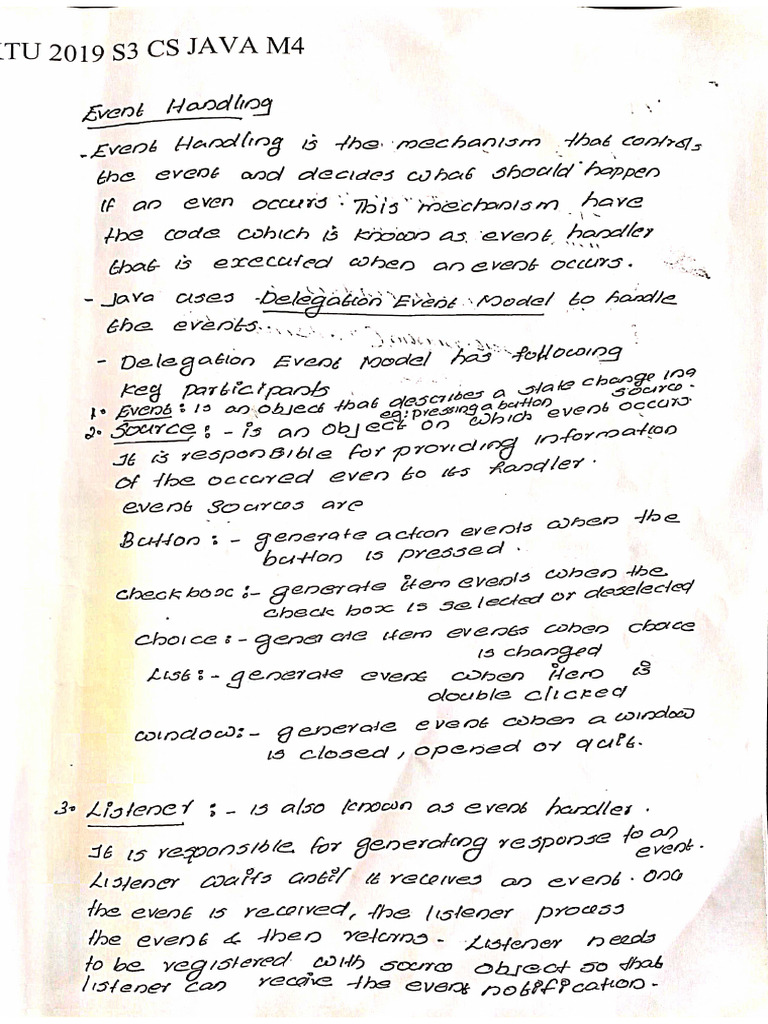 KTU 2019 S3 CS JAVA M4
Event Handling
- Event Handling is the mechanism that controls
the event and decides what should happen
if an even occurs. This mechanism have
the code which is known as event handler
that is executed when an event occurs.
- Java uses Delegation Event Model to handle
the events.
- Delegation Event Model has following
key participants
1. Event: is an object that describes a state change in a source.
eg: pressing a button
2. Source: - is an object on which event occurs
It is responsible for providing information
of the occured even to its handler.
event sources are
Button: - generate action events when the
button is pressed.
checkbox: - generate item events when the
check box is selected or deselected
choice: - generate item events when choice
is changed
List: - generate event when item is
double clicked
window: - generate event when a window
is closed, opened or quit.
3. Listener: - is also known as event handler.
It is responsible for generating response to an
event.
Listener waits until it receives an event. Once
the event is received, the listener process
the event & then returns. Listener needs
to be registered with source object so that
listener can receive the event notification.